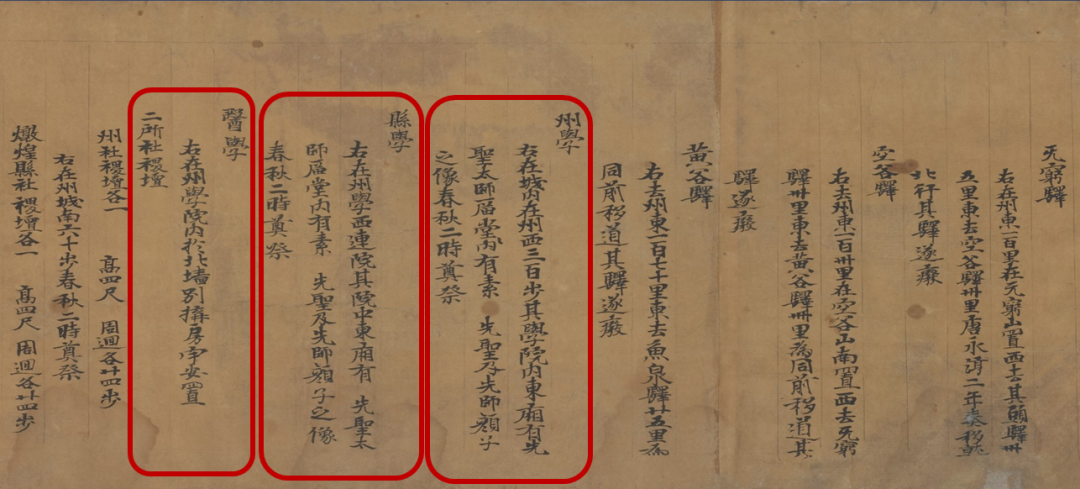 無窮驛
右在州東一百里在無窮山置西去其頭驛卅
五里東去空谷驛卌里唐永淳二年奏移就
北行其驛遂廢
空谷驛
右去州東一百卌里在空谷山南置西去無窮
驛卌里東去黃谷驛卌里為同前移道其
驛遂廢
黃谷驛
右去州東一百七十里東去魚泉驛廿五里為
同前移道其驛遂廢
州學
右在城內在州西三百步其學院內東廂有先
聖太師庿堂內有素 先聖及先師顏子
之像春秋二時奠祭
縣學
右在州學西連院其院中東廂有 先聖太
師庿堂內有素 先聖及先師顏子之像
春秋二時奠祭
醫學
右在州學院內於北墻別搆房宇安置
二所社稷壇
州社稷壇各一 高四尺 周迴各廿四步
右在州城南六十步春秋二時奠祭
燉煌縣社稷壇各一 高四尺 周迴各廿四步